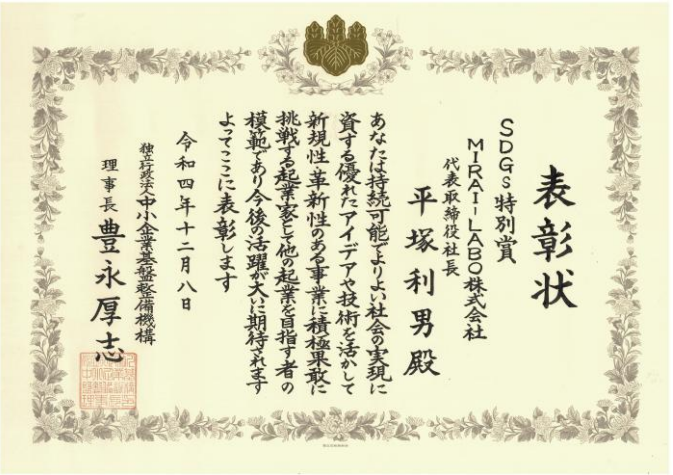 表彰状
SDGs特別賞
MIRAI-LABO株式会社
代表取締役社長
平塚利男殿
あなたは持続可能でよりよい社会の実現に
資する優れたアイデアや技術を活かして
新規性・革新性のある事業に積極果敢に
挑戦する起業家として他の起業を目指す者の
模範であり今後の活躍が大いに期待されます
よってここに表彰します
令和四年十二月八日
独立行政法人中小企業基盤整備機構
理事長 豊永厚志